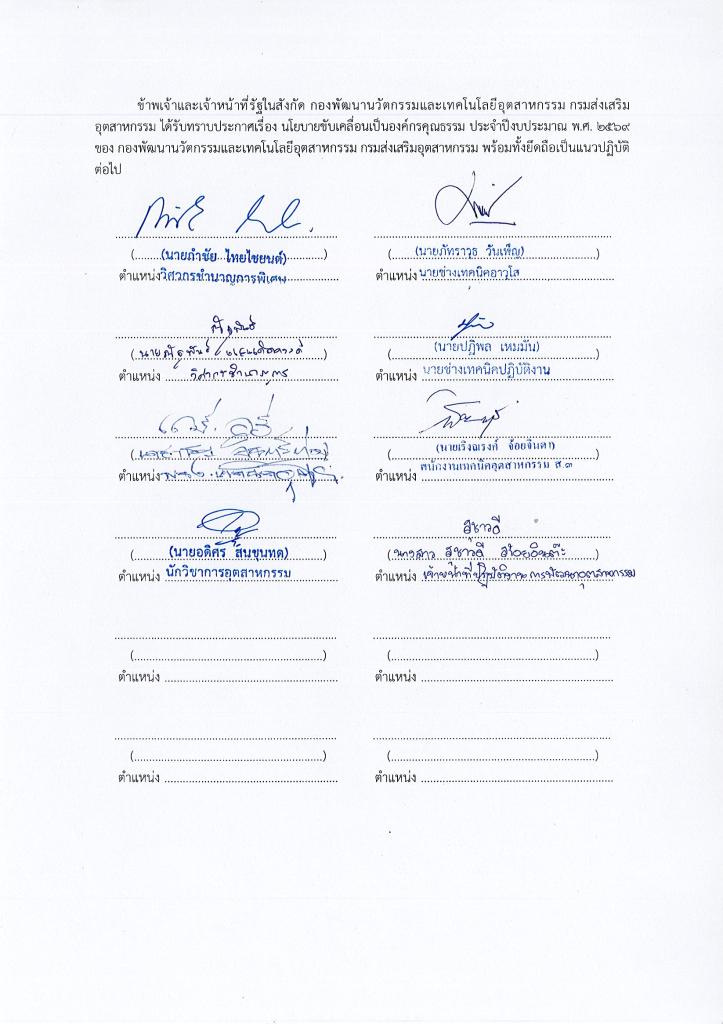 ข้าพเจ้าและเจ้าหน้าที่รัฐในสังกัด กองพัฒนานวัตกรรมและเทคโนโลยีอุตสาหกรรม กรมส่งเสริม
อุตสาหกรรม ได้รับทราบประกาศเรื่อง นโยบายขับเคลื่อนเป็นองค์กรคุณธรรม ประจำปีงบประมาณ พ.ศ. ๒๕๖๙
ของ กองพัฒนานวัตกรรมและเทคโนโลยีอุตสาหกรรม กรมส่งเสริมอุตสาหกรรม พร้อมทั้งยึดถือเป็นแนวปฏิบัติ
ต่อไป
(นายกำชัย ไทยไชยนต์)
ตำแหน่ง วิศวกรชำนาญการพิเศษ
(นายภัทราวุธ วันเพ็ญ)
ตำแหน่ง นายช่างเทคนิคอาวุโส
ณัฐพันธ์
(นายณัฐพันธ์)
ตำแหน่ง วิศวกรชำนาญการ
(นายปฏิพล เหมมัน)
ตำแหน่ง นายช่างเทคนิคปฏิบัติงาน
ตำแหน่ง
(นายเริงณรงค์ จ้อยจินดา)
ตำแหน่ง พนักงานเทคนิคอุตสาหกรรม ส.๓
(นายอดิศร สินขุนทด)
ตำแหน่ง นักวิชาการอุตสาหกรรม
สุชาวดี
(นางสาว สุชาวดี)
ตำแหน่ง เจ้าหน้าที่ปฏิบัติงานการพัฒนาอุตสาหกรรม
(      )
ตำแหน่ง
(      )
ตำแหน่ง
(      )
ตำแหน่ง
(      )
ตำแหน่ง